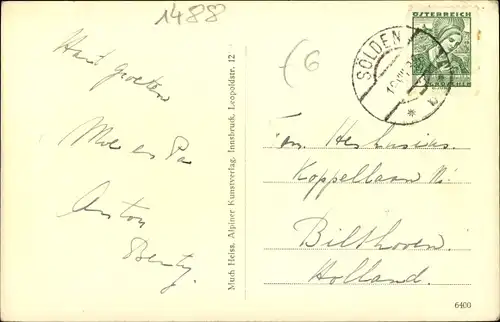 1488
(6
ÖSTERREICH
SÖLDEN
GROSCHEN
Hart. groeten
Moe en Pa
Anton
Benty.
Much Heiss, Alpiner Kunstverlag, Innsbruck, Leopoldstr. 12
Fam.
Koppellaan
Bilthoven.
Holland.
6400